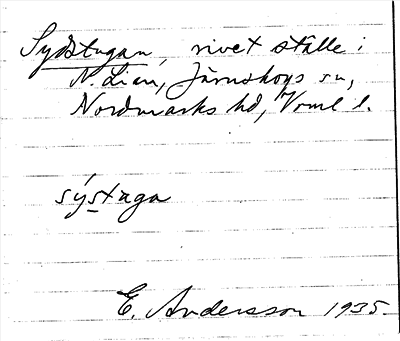 Sydstugan, rivet ställe i
N. Lian, Järnskogs sn,
Nordmarks hd, Vrml l.
sýstuga
E. Andersson 1935.